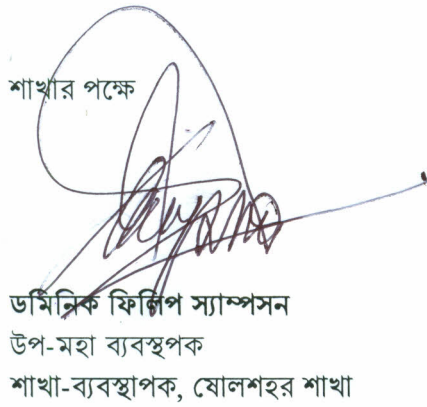 শাখার পক্ষে
ডমিনিক ফিলিপ স্যাম্পসন
উপ-মহা ব্যবস্থপক
শাখা-ব্যবস্থাপক, ষোলশহর শাখা